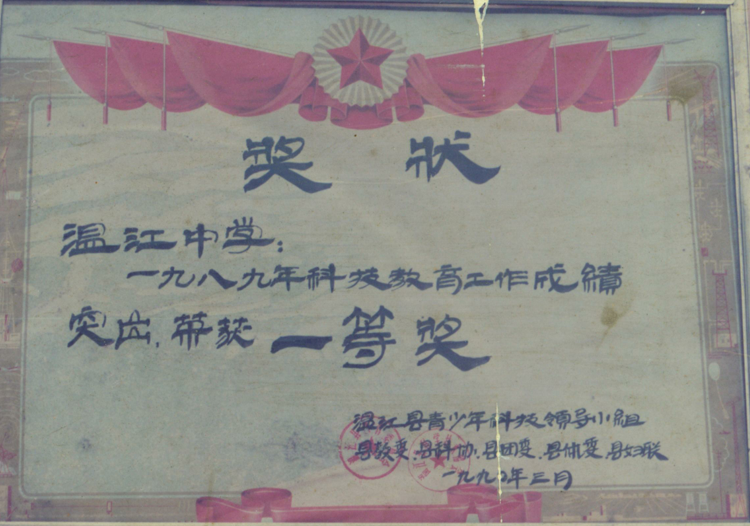 奖状
温江中学：
一九八九年科技教育工作成績
突出，荣获一等奖
温江县青少年科技领导小组
县教委、县科协、县团委、县体委、县妇联
一九九〇年三月